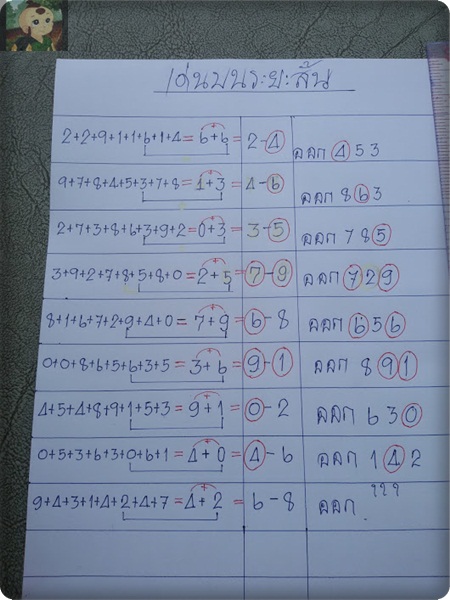 เด่นบนระยะสั้น
2+2+9+1+1+6+1+4 = 6+6 = 2-4 ออก 453
9+7+8+4+5+3+7+8 = 1+3 = 4-6 ออก 863
2+7+3+8+6+3+9+2 = 0+3 = 3-5 ออก 785
3+9+2+7+8+5+8+0 = 2+5 = 7-9 ออก 729
8+1+6+7+2+9+4+0 = 7+9 = 6-8 ออก 656
0+0+8+6+5+6+3+5 = 3+6 = 9-1 ออก 891
4+5+4+8+9+1+5+3 = 9+1 = 0-2 ออก 630
0+5+3+6+3+0+6+1 = 4+0 = 4-6 ออก 142
9+4+3+1+4+2+4+7 = 4+2 = 6-8 ออก ???